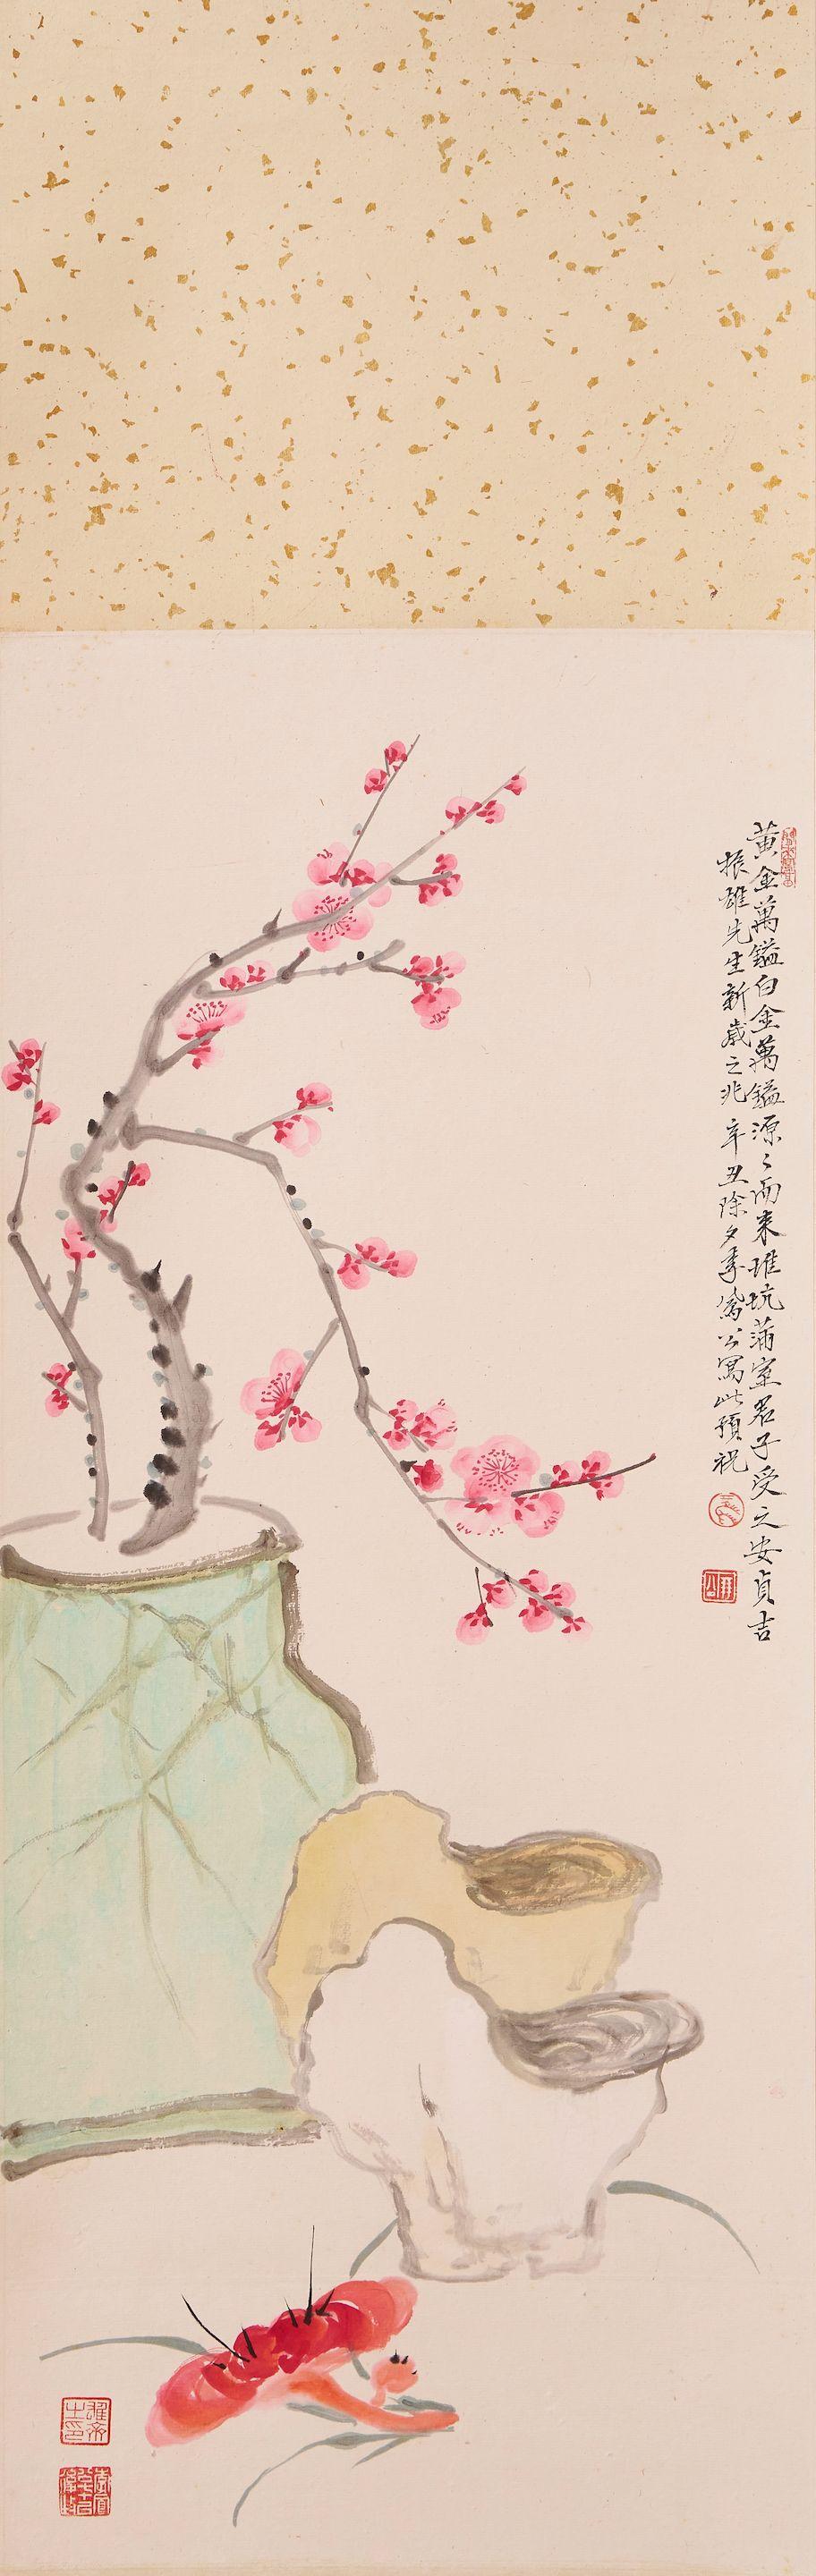 黄金萬鎰白金萬鎰源〻而来堆坑滿室君子受之安貞吉
振雄先生新歲之兆 辛丑除夕季 公寫此預祝